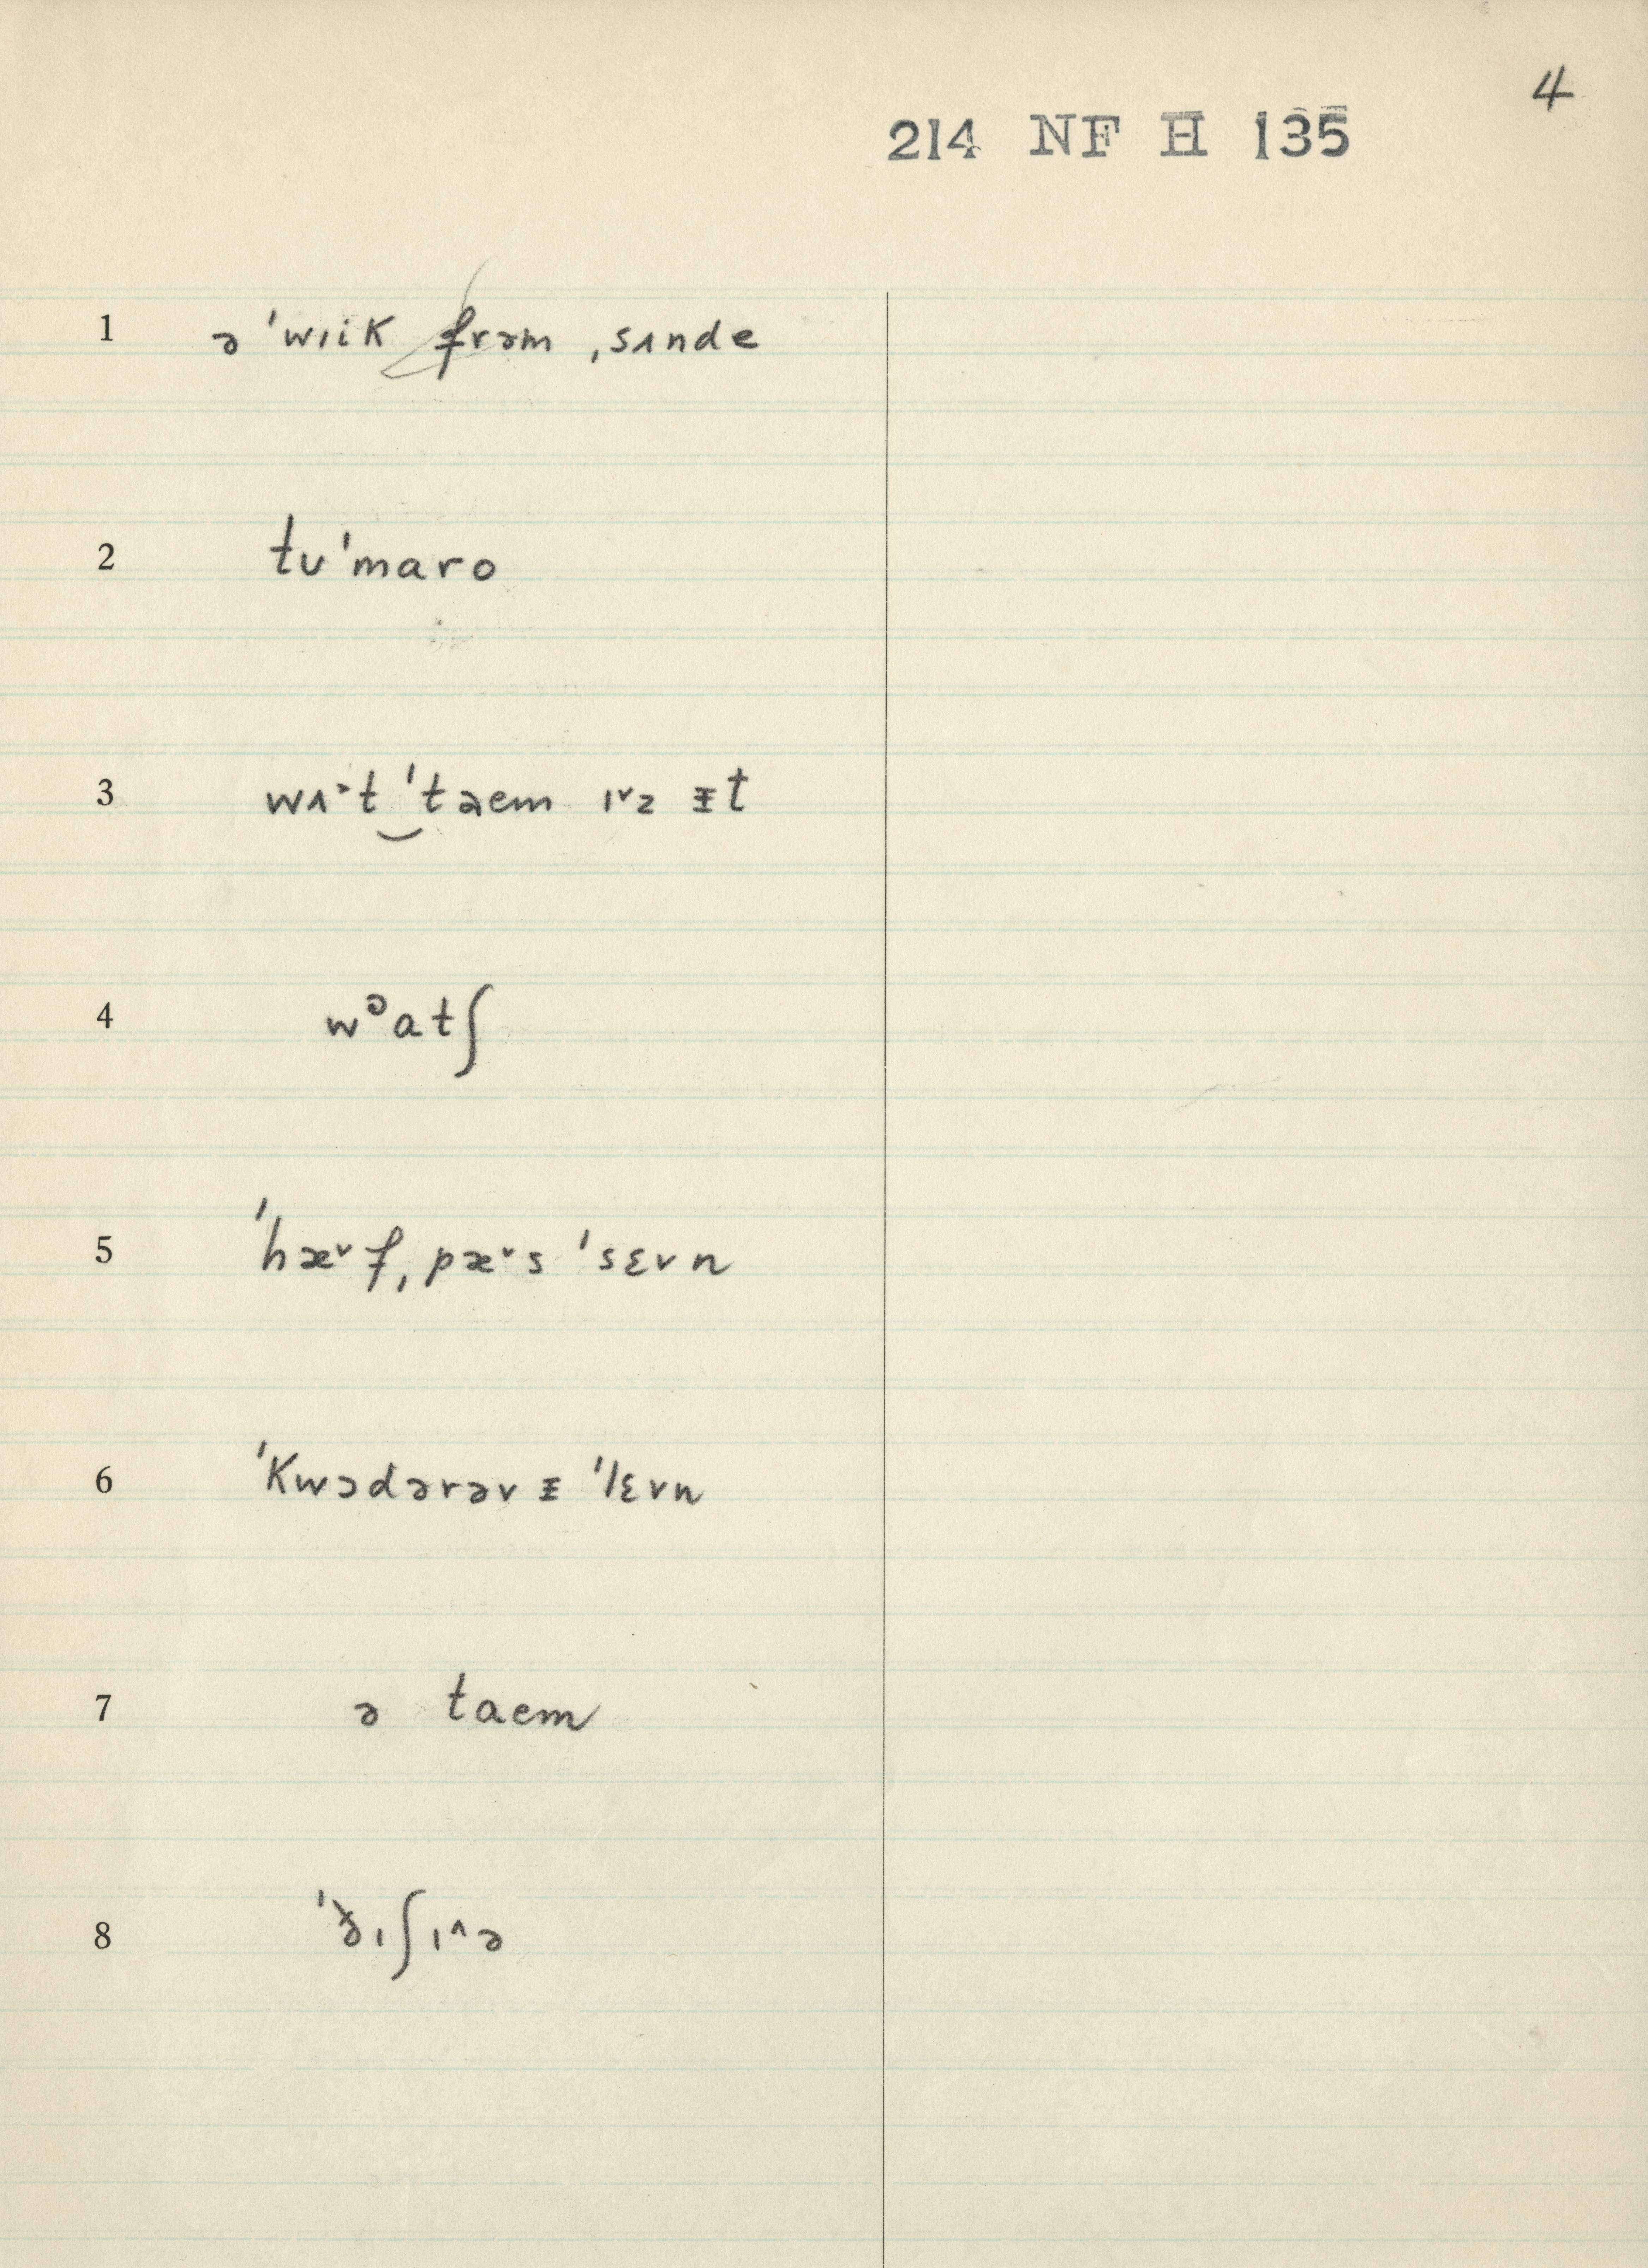 4
214 NF H 135
1 ə ˈwɪik frəm ˌsʌnde
2 tʊˈmaro
3 wʌ˃t‿ˈtaem ɪ˅z ᵻt
4 wᵊatʃ
5 ˈhæ˅f ˌpæ˅s ˈsɛvn
6 ˈkwɔdərəv ᵻ ˈlɛvn
7 ə taem
8 ˈðɪʃɪ˄ə